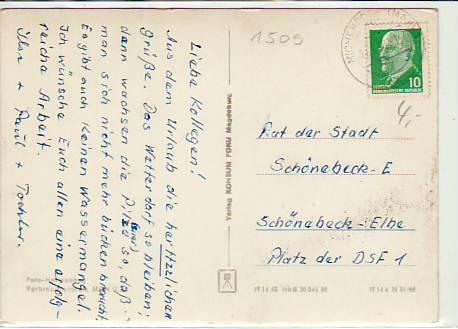 Liebe Kollegen!
Aus dem Urlaub die herzlichen
Grüße. Das Wetter darf so bleiben;
dann wachsen die Pilze so, daß
man sich nicht mehr bücken braucht.
Es gibt auch keinen Wassermangel.
Ich wünsche Euch allen eine erfolg-
reiche Arbeit.
Ihr + Paul + Tochter.
1509
10
DEUTSCHE
DEMOKRATISCHE REPUBLIK
4,-
Verlag KONSUM FOKU Magdeburg
Rat der Stadt
Schönebeck-E
Schönebeck-Elbe
Platz der DSF 1